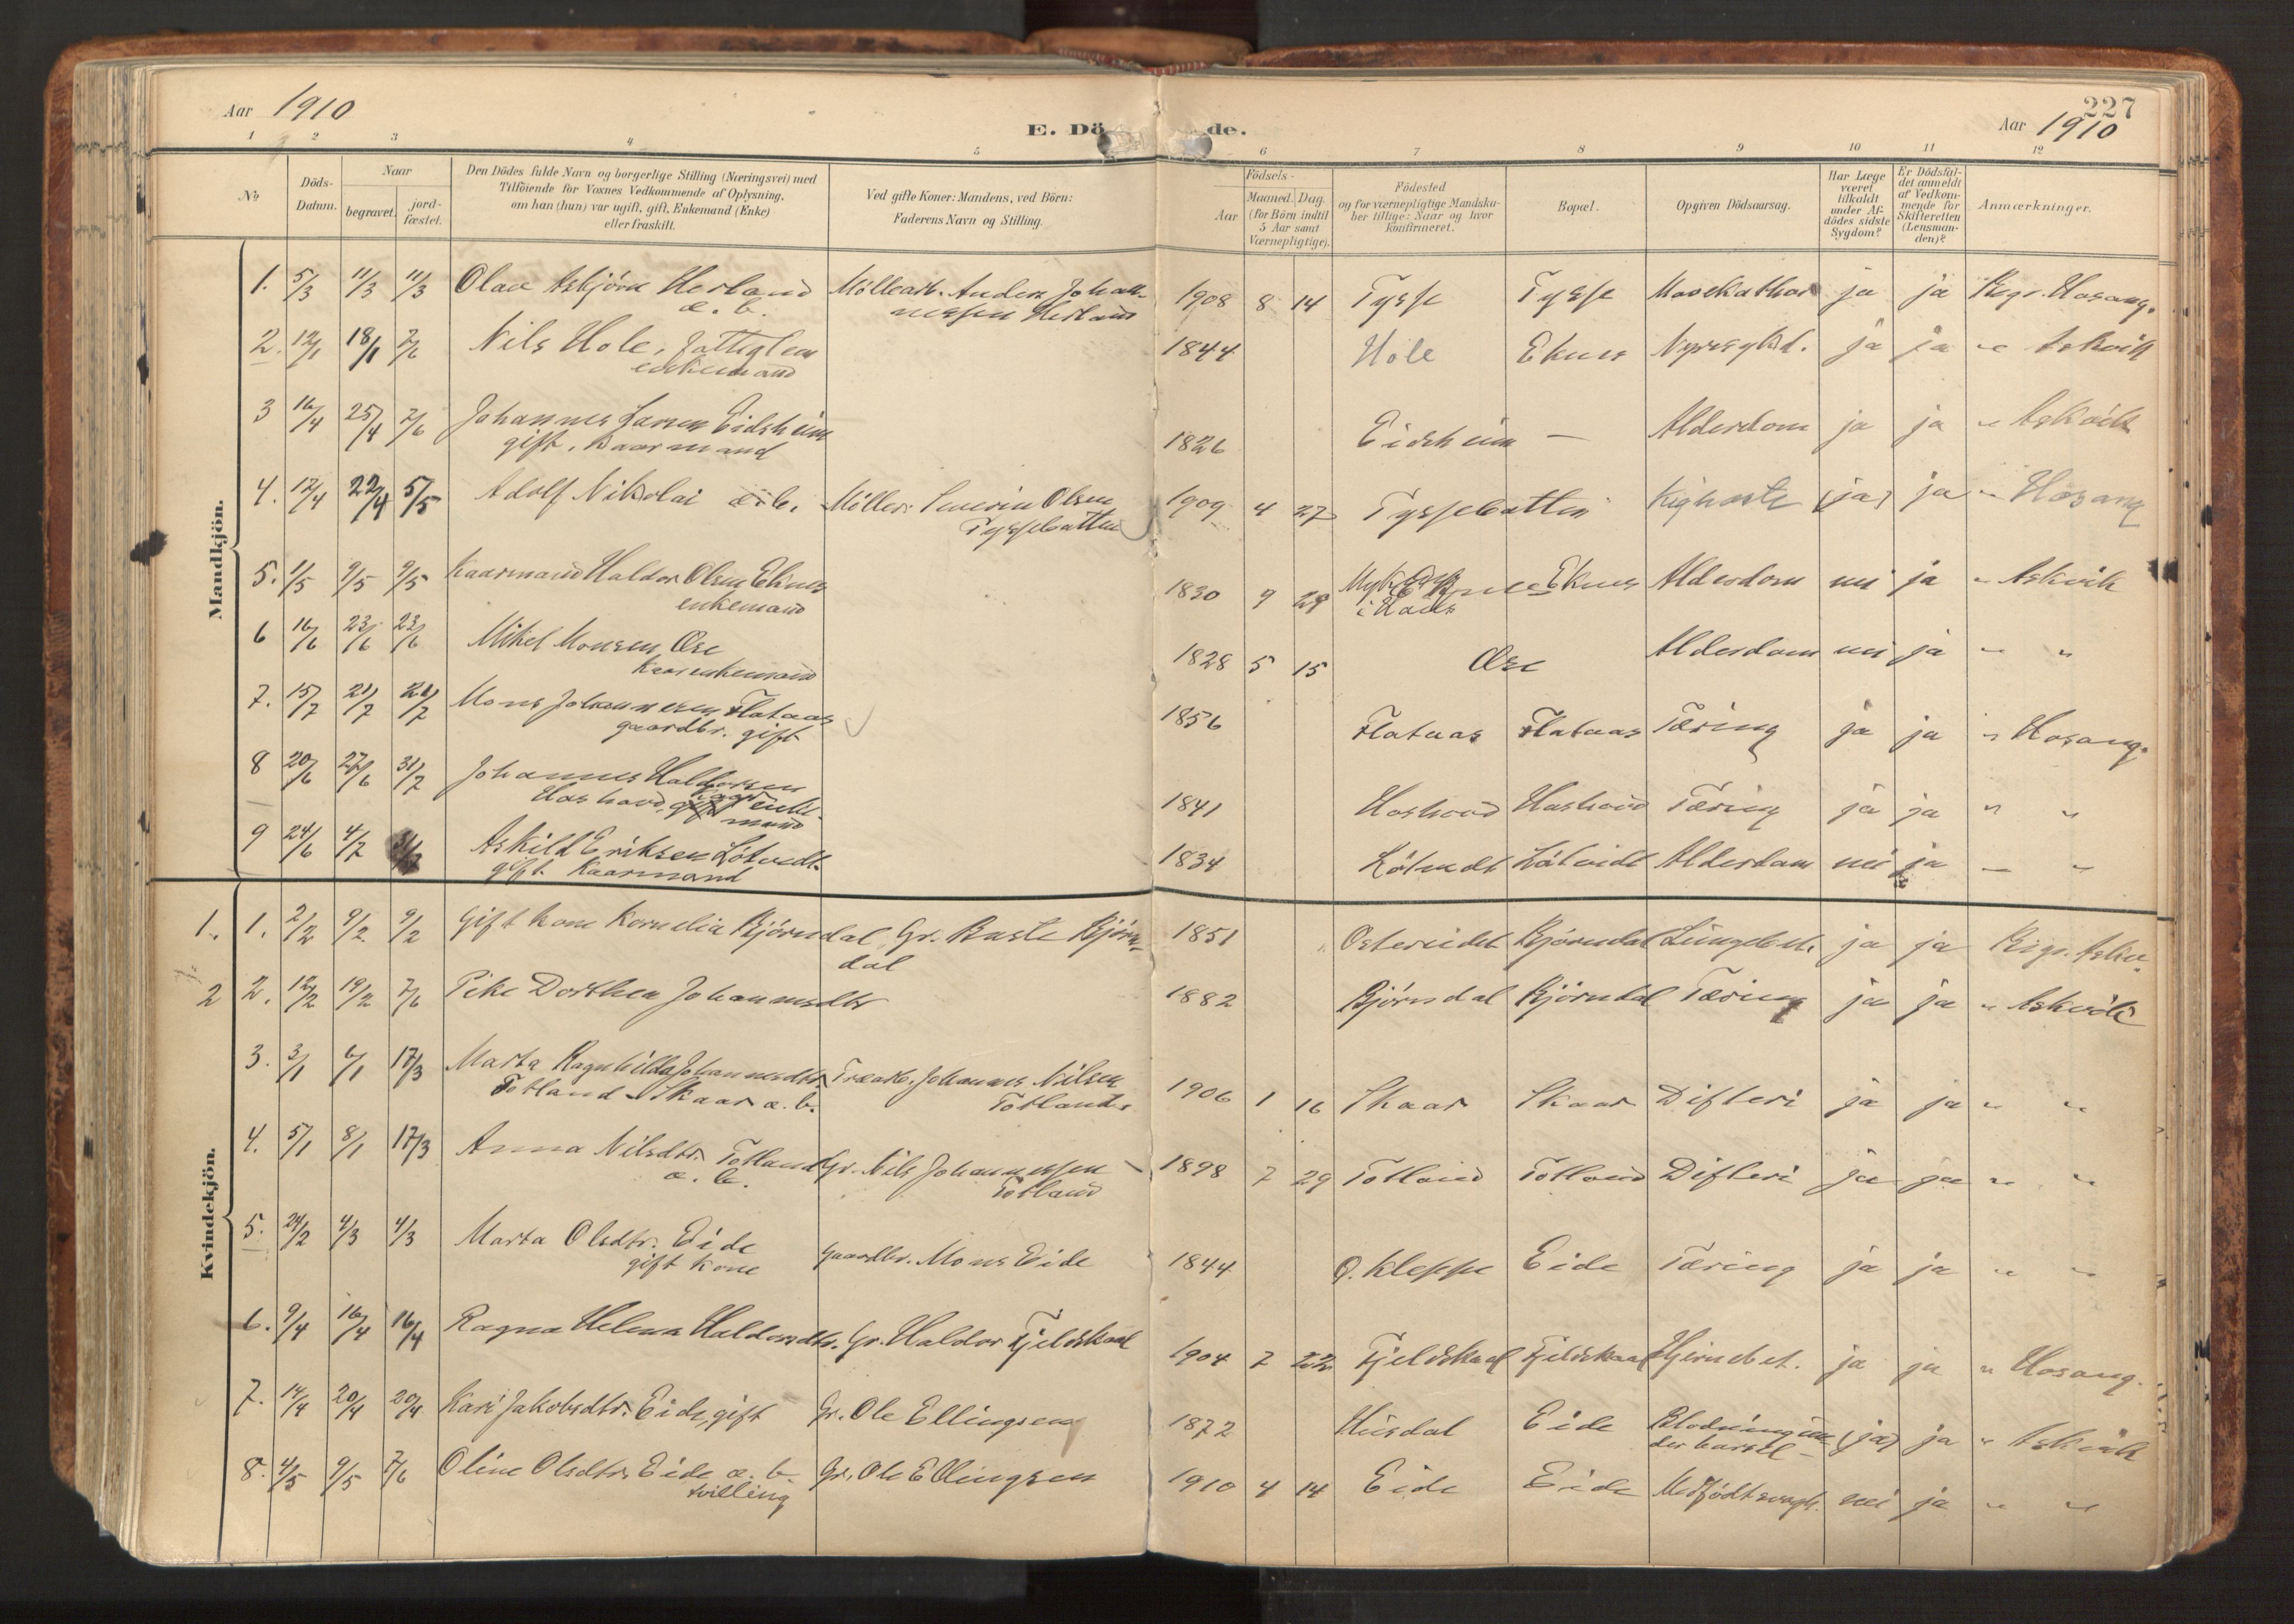 227
Aar 1910
E. Dö de.
Aar 1910
1 2 3 4 5 6 7 8 9 10 11 12
No
Döds-
Datum.
Naar
begravet.
jord-
fæstet.
Den Dödes fulde Navn og borgerlige Stilling (Næringsvei) med
Tilföiende for Voxnes Vedkommende af Oplysning,
om han (hun) var ugift, gift, Enkemand (Enke)
eller fraskilt.
Ved gifte Koner: Mandens, ved Börn:
Faderens Navn og Stilling.
Födsels-
Aar
Maaned. Dag.
(for Börn indtil
5 Aar samt
Værnepligtige).
Födested
og for værnepligtige Mandska-
ber tillige: Naar og hvor
konfirmeret.
Bopæl.
Opgiven Dödsaarsag.
Har Læge
været
tilkaldt
under Af-
dödes sidste
Sygdom?
Er Dödsfal-
det anmeldt
af Vedkom-
mende for
Skifteretten
(Lensman-
den)?
Anmærkninger.
Mandkjön.
1. 5/3 11/3 11/3 Olav Asbjörn Herland Mölleark. Anders Johan- 1908 8 14 Tysse Tysse ja ja Begr. Hosang.
æ. b. nessen Herland
2. 12/1 18/1 7/6 Nils Hole, Fattiglem 1844 Hole Eknes Nyresygd. ja ja " Askvik
enkemand
3 16/4 25/4 7/6 Johannes Larsen Eidsheim 1826 Eidsheim — Alderdom ja ja " Askvik
gift, Kaarmand
4. 12/4 22/4 5/5 Adolf Nikolai æ. b. Möller Severin Olsen 1909 4 27 Tyssebotten Kighoste (ja) ja " Hosang
Tyssebotten
5. 1/5 9/5 9/5 Kaarmand Haldor Olsen Eknes 1830 9 29 Eknes Alderdom nei ja " Askvik
enkemand
6 16/6 23/6 23/6 Mikel Monsen Øse 1828 5 15 Øse Alderdom nei ja " "
Kaarenkemand
7. 15/7 21/7 21/7 Mons Johannesen Flataas 1856 Flataas Flataas Tæring ja ja " Hosang.
gaardbr. gift
8 20/6 27/6 31/7 Johannes Haldorsen 1841 Tæring ja ja " "
Kaar enke-
mand
9 24/6 4/7 Askild Eriksen 1834 Alderdom nei ja — "
gift Kaarmand
Kvindekjön.
1. 1. 2/2 9/2 9/2 Gift kone Kornelia Björndal Gr. Björn- 1851 Ostereidet Björndal Lungebet. ja ja Begr. Askv.
dal
2 2. 12/2 19/2 7/6 Pike Dorthea Johannesdtr 1882 Björndal Björndal Tæring ja ja " Askvik
3. 3/1 6/1 17/3 Marta Ragnhilda Johannesdtr. Træark. Johannes Nilsen 1906 1 16 Skaar Skaar Difteri ja ja " "
Totland Skaar æ. b. Totland
4. 5/1 8/1 17/3 Anna Nilsdtr. Totland Gr. Nils Johannessen 1898 7 29 Totland Totland Difteri ja ja " "
æ. b. Totland
5. 24/2 4/3 4/3 Marta Olsdtr. Eide Gaardbr. Mons Eide 1844 Ø. Kleppe Eide Tæring ja ja " "
gift kone
6. 9/4 16/4 16/4 Ragna Helena Haldorsdtr. Gr. Haldor Fjeldskaal 1904 7 22 Fjeldskaal Fjeldskaal Hjernebet. ja ja " Hosang.
7. 14/4 20/4 20/4 Kari Jakobsdtr. Eide, gift Gr. Ole Ellingsen 1872 Husdal Eide Blodning un- (ja) ja " Askvik
der barsel
8. 4/5 9/5 7/6 Oline Olsdtr. Eide æ. b. Gr. Ole Ellingsen 1910 4 14 Eide Eide Medfödt svagh. nei ja " "
tvilling